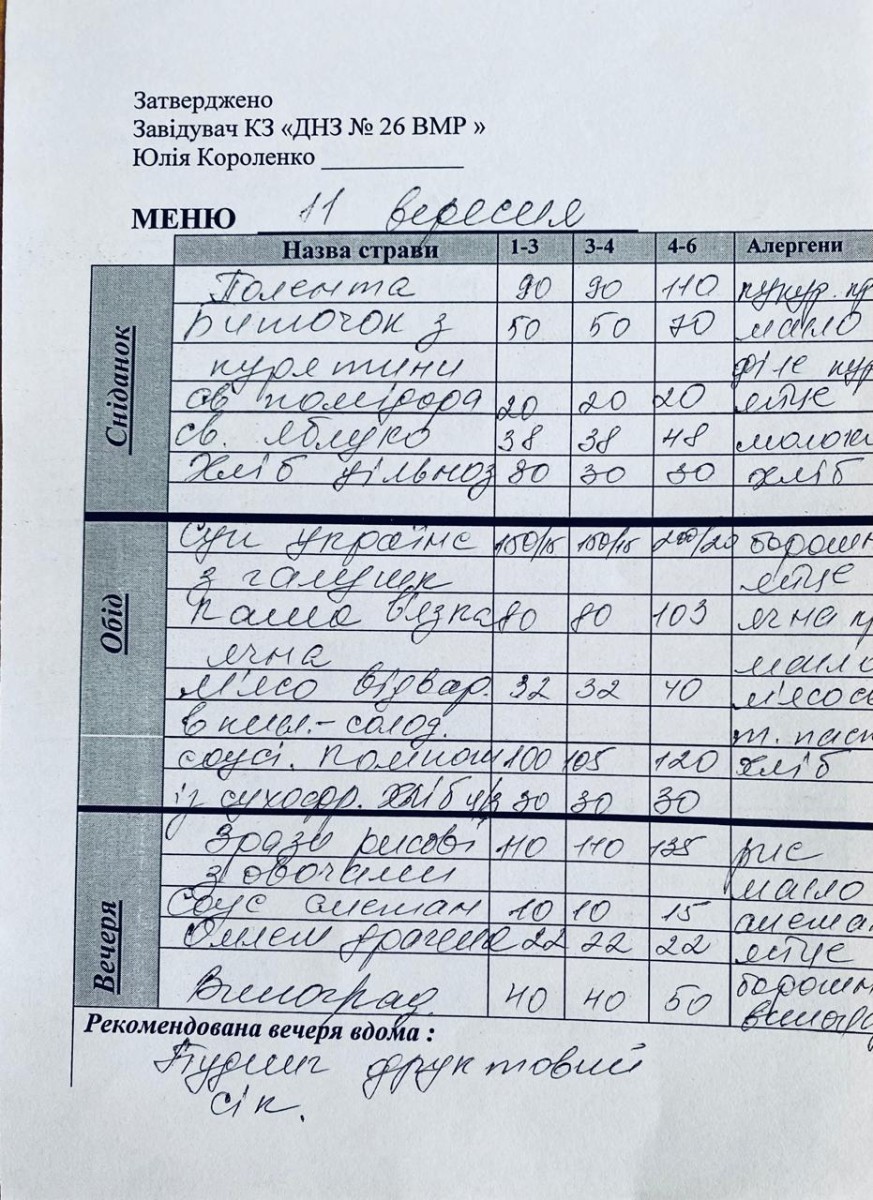 Затверджено
Завідувач КЗ «ДНЗ № 26 ВМР »
Юлія Короленко
МЕНЮ 11 вересня
Назва страви 1-3 3-4 4-6 Алергени
Сніданок
Полента 90 90 110 кукур. кр
Биточок з 50 50 70 масло
курятини філе кур
св помідора 20 20 20 яйце
св. яблуко 38 38 48 молоко
Хліб цільноз 30 30 30 хліб
Обід
Суп українс 150/15 150/15 200/20 борошн
з галушк яйце
Каша в'язка 80 80 103 ячна кр
ячна масло
М'ясо відвар. 32 32 40 м'ясо св
в кисл.-солод. т. паст
соусі. Компот 100 105 120 хліб
із сухофр. Хліб ц/з 30 30 30
Вечеря
Зрази рисові 110 110 135 рис
з овочами масло
Соус сметан 10 10 15 смета
Омлет драчена 22 22 22 яйце
борошн
Виноград. 40 40 50 виногр
Рекомендована вечеря вдома :
Пудинг фруктовий
сік.